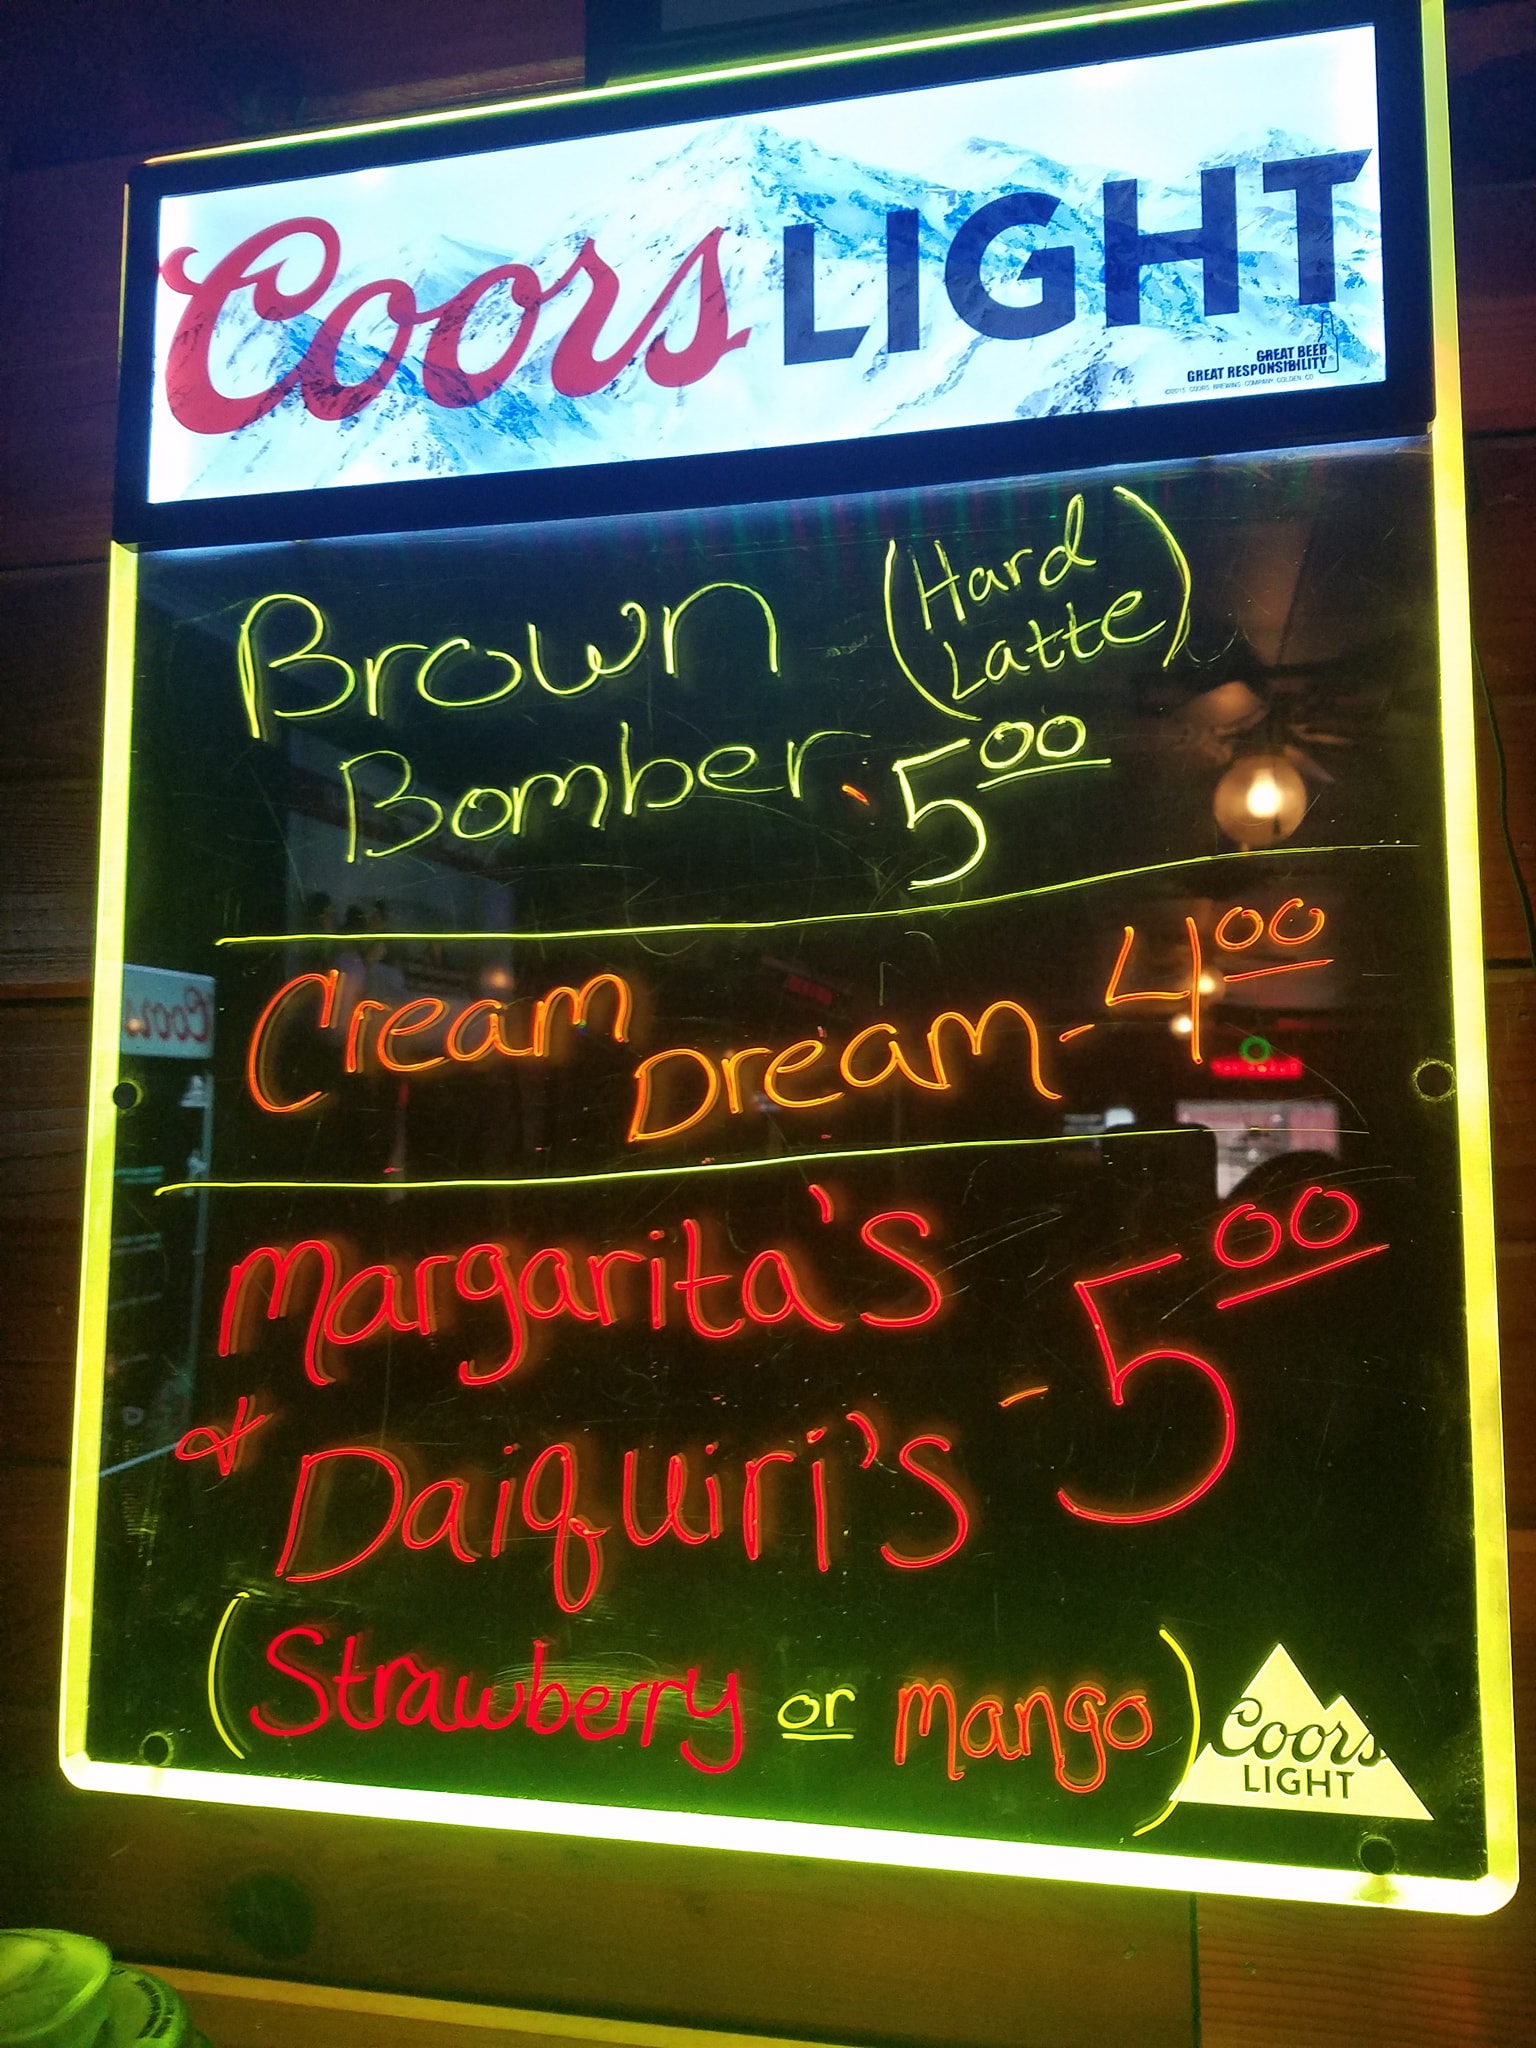 Coors LIGHT
GREAT BEER
GREAT RESPONSIBILITY
©2015 COORS BREWING COMPANY, GOLDEN, CO
Brown (Hard Latte)
Bomber - 5.00
Cream Dream - 4.00
Margarita's
& Daiquiri's - 5.00
(Strawberry or Mango)
Coors
LIGHT